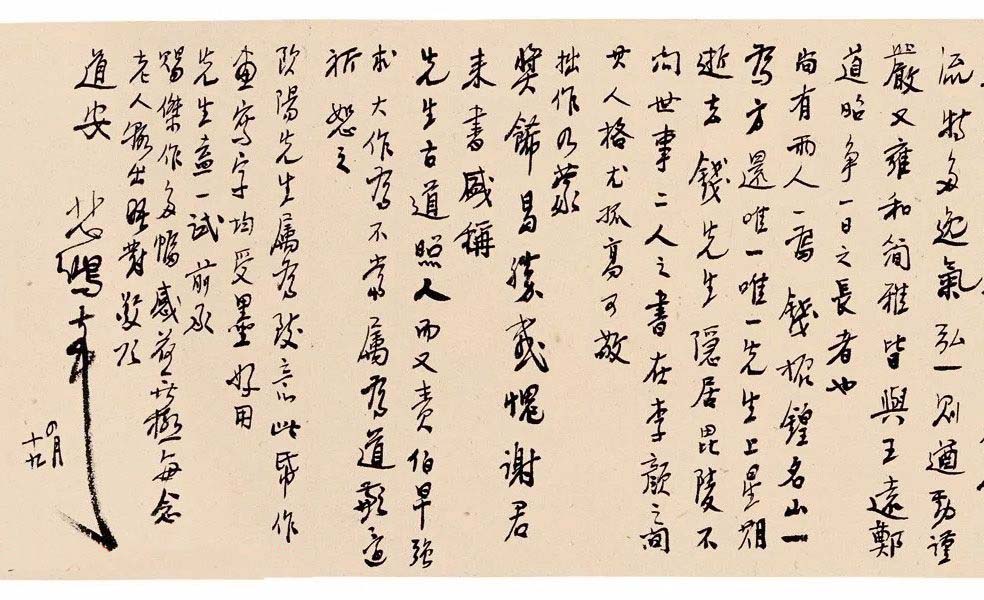 流特多逸氣弘一則遒勁謹
嚴又雍和簡雅皆與王遠鄭
道昭爭一日之長者也
尚有兩人一為錢振鍠名山一
為方還唯一唯一先生上星期
逝去錢先生隱居毘陵不
問世事二人之書在李顏之間
其人格尤孤高可敬
拙作乃蒙
獎飾曷勝感愧謝君
來書盛稱
先生古道照人而又責伯早強
求大作為不當屬為道歉意
祈恕之
歐陽先生屬為致意此紙作
畫寫字均受墨好用
先生盍一試前承
賜傑作多幅感荷無極每念
老人輒出晤對敬頌
道安
悲鴻頓首
四月
十九